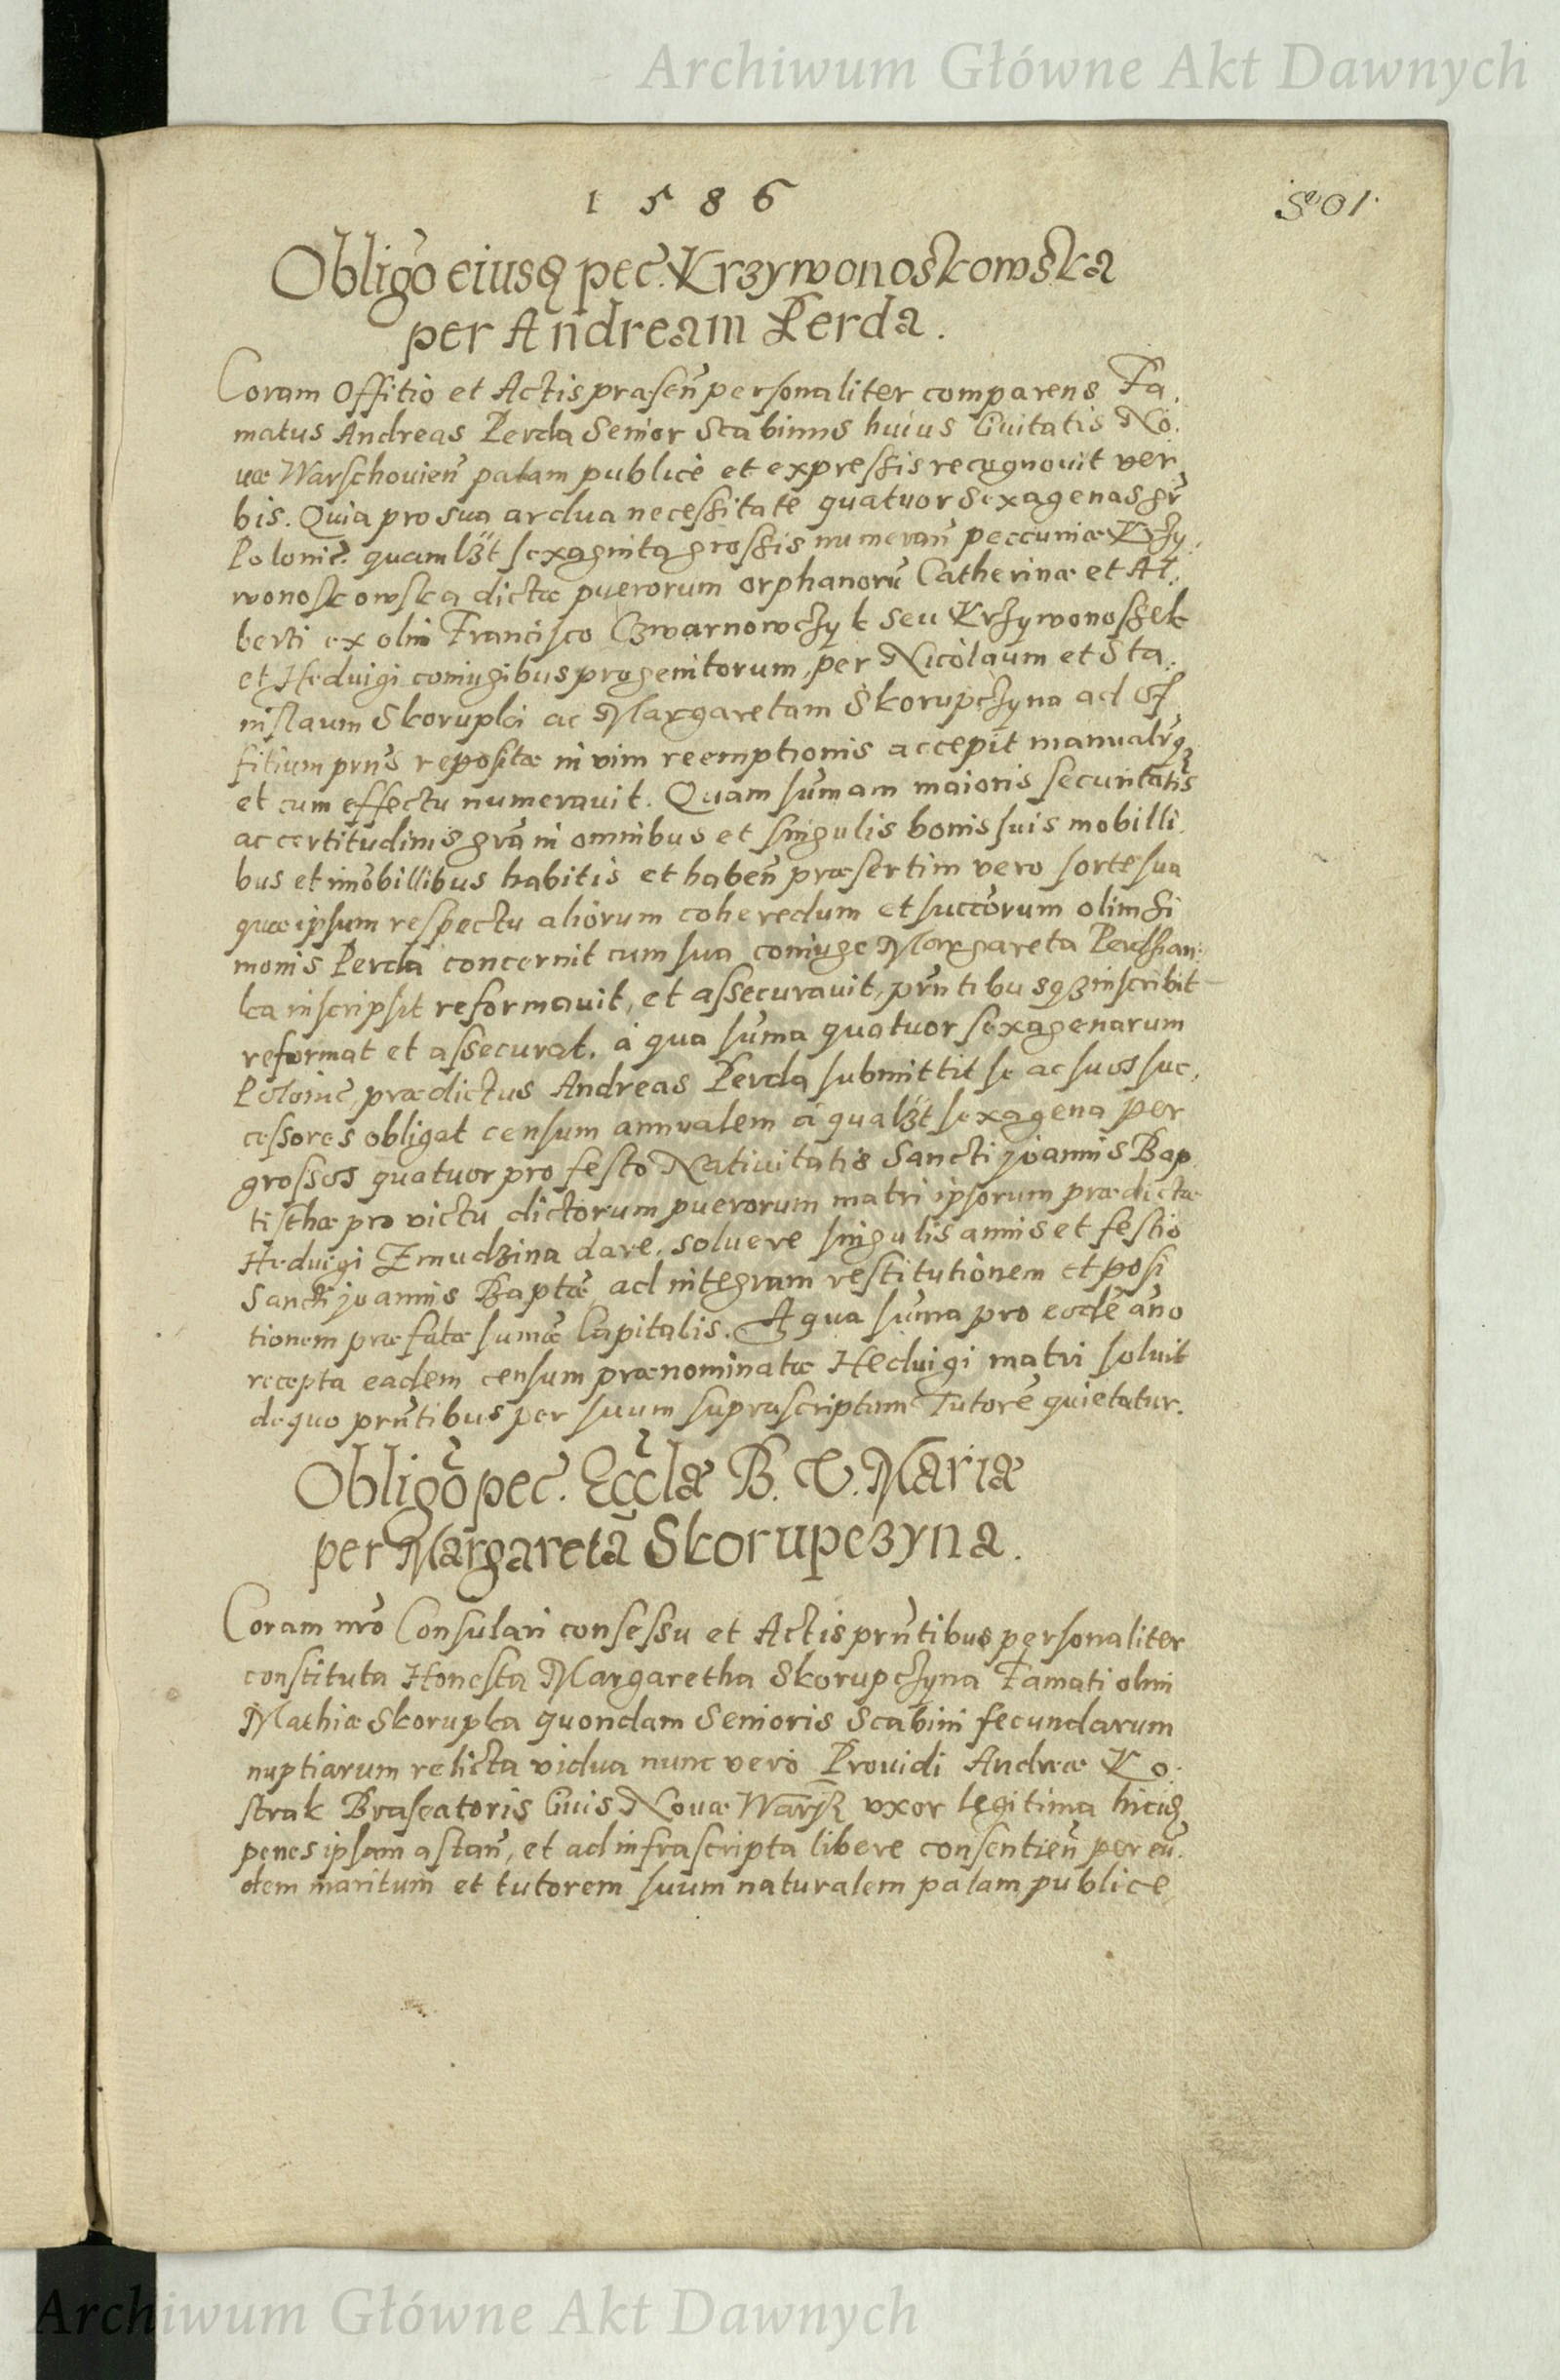 Archiwum Główne Akt Dawnych
1586
Obligo eiusq pec. Krzywonoskowska
per Andream Perda.
Coram Offitio et Actis præsen personaliter comparens Fa,
matus Andreas Perda Senior Scabinus huius Civitatis No,
væ Warschovien palam publice et expressis recognovit ver
bis. Quia pro sua ardua necessitate quatuor sexagenas gr
Polonic. quamlzt sexaginta grossis numeran peccuniæ Krzy,
wonoskowska dictæ puerorum orphanoru Catherinæ et Al,
berti ex olim Francisco Czwarnowczyk seu Krzywonossek
et Hedvigi coniugibus progenitorum, per Nicolaum et Sta,
nislaum Skorupki ac Margaretam Skorupczyna ad Of
fitium prius repositæ in vim reemptionis accepit manualrq
et cum effectu numeravit. Quam sumam maioris securitatis
ac certitudinis gra in omnibus et singulis bonis suis mobilli,
bus et imobillibus habitis et haben præsertim vero sorte sua
quæ ipsum respectu aliorum coheredum et succorum olim Si
monis Perda concernit cum sua coniuge Margareta Perdzian,
ka inscripsit reformavit, et assecuravit, prntibusqz inscribit
reformat et assecurat. à qua suma quatuor sexagenarum
Polonic, prædictus Andreas Perda submittit se ac suos suc,
cessores obligat censum annualem à qualzt sexagena per
grossos quatuor pro festo Nativitatis Sancti joannis Bap
tisthæ pro victu dictorum puerorum matri ipsorum prædictæ
Hedvigi Zmudzina dare, solvere singulis annis et festis
Sancti joannis Baptæ ad integram restitutionem et posi
tionem præfatæ sumæ Capitalis. A qua suma pro eode ano
recepta eadem censum prænominatæ Hedvigi matri solvit
de quo prntibus per suum suprascriptum Tutore quietatur.
Obligo pec. Ecclæ B. V. Mariæ
per Margareta Skorupczyna.
Coram nro Consulari consessu et Actis prntibus personaliter
constituta Honesta Margaretha Skorupczyna Famati olim
Mathiæ Skorupka quondam Senioris Scabini secundarum
nuptiarum relicta vidua nunc vero Providi Andreæ Ko,
strak Braseatoris Civis Novæ Warsz uxor legitima hicq
penes ipsam astan, et ad infrascripta libere consentien per eu,
dem maritum et tutorem suum naturalem palam publice
Archiwum Główne Akt Dawnych